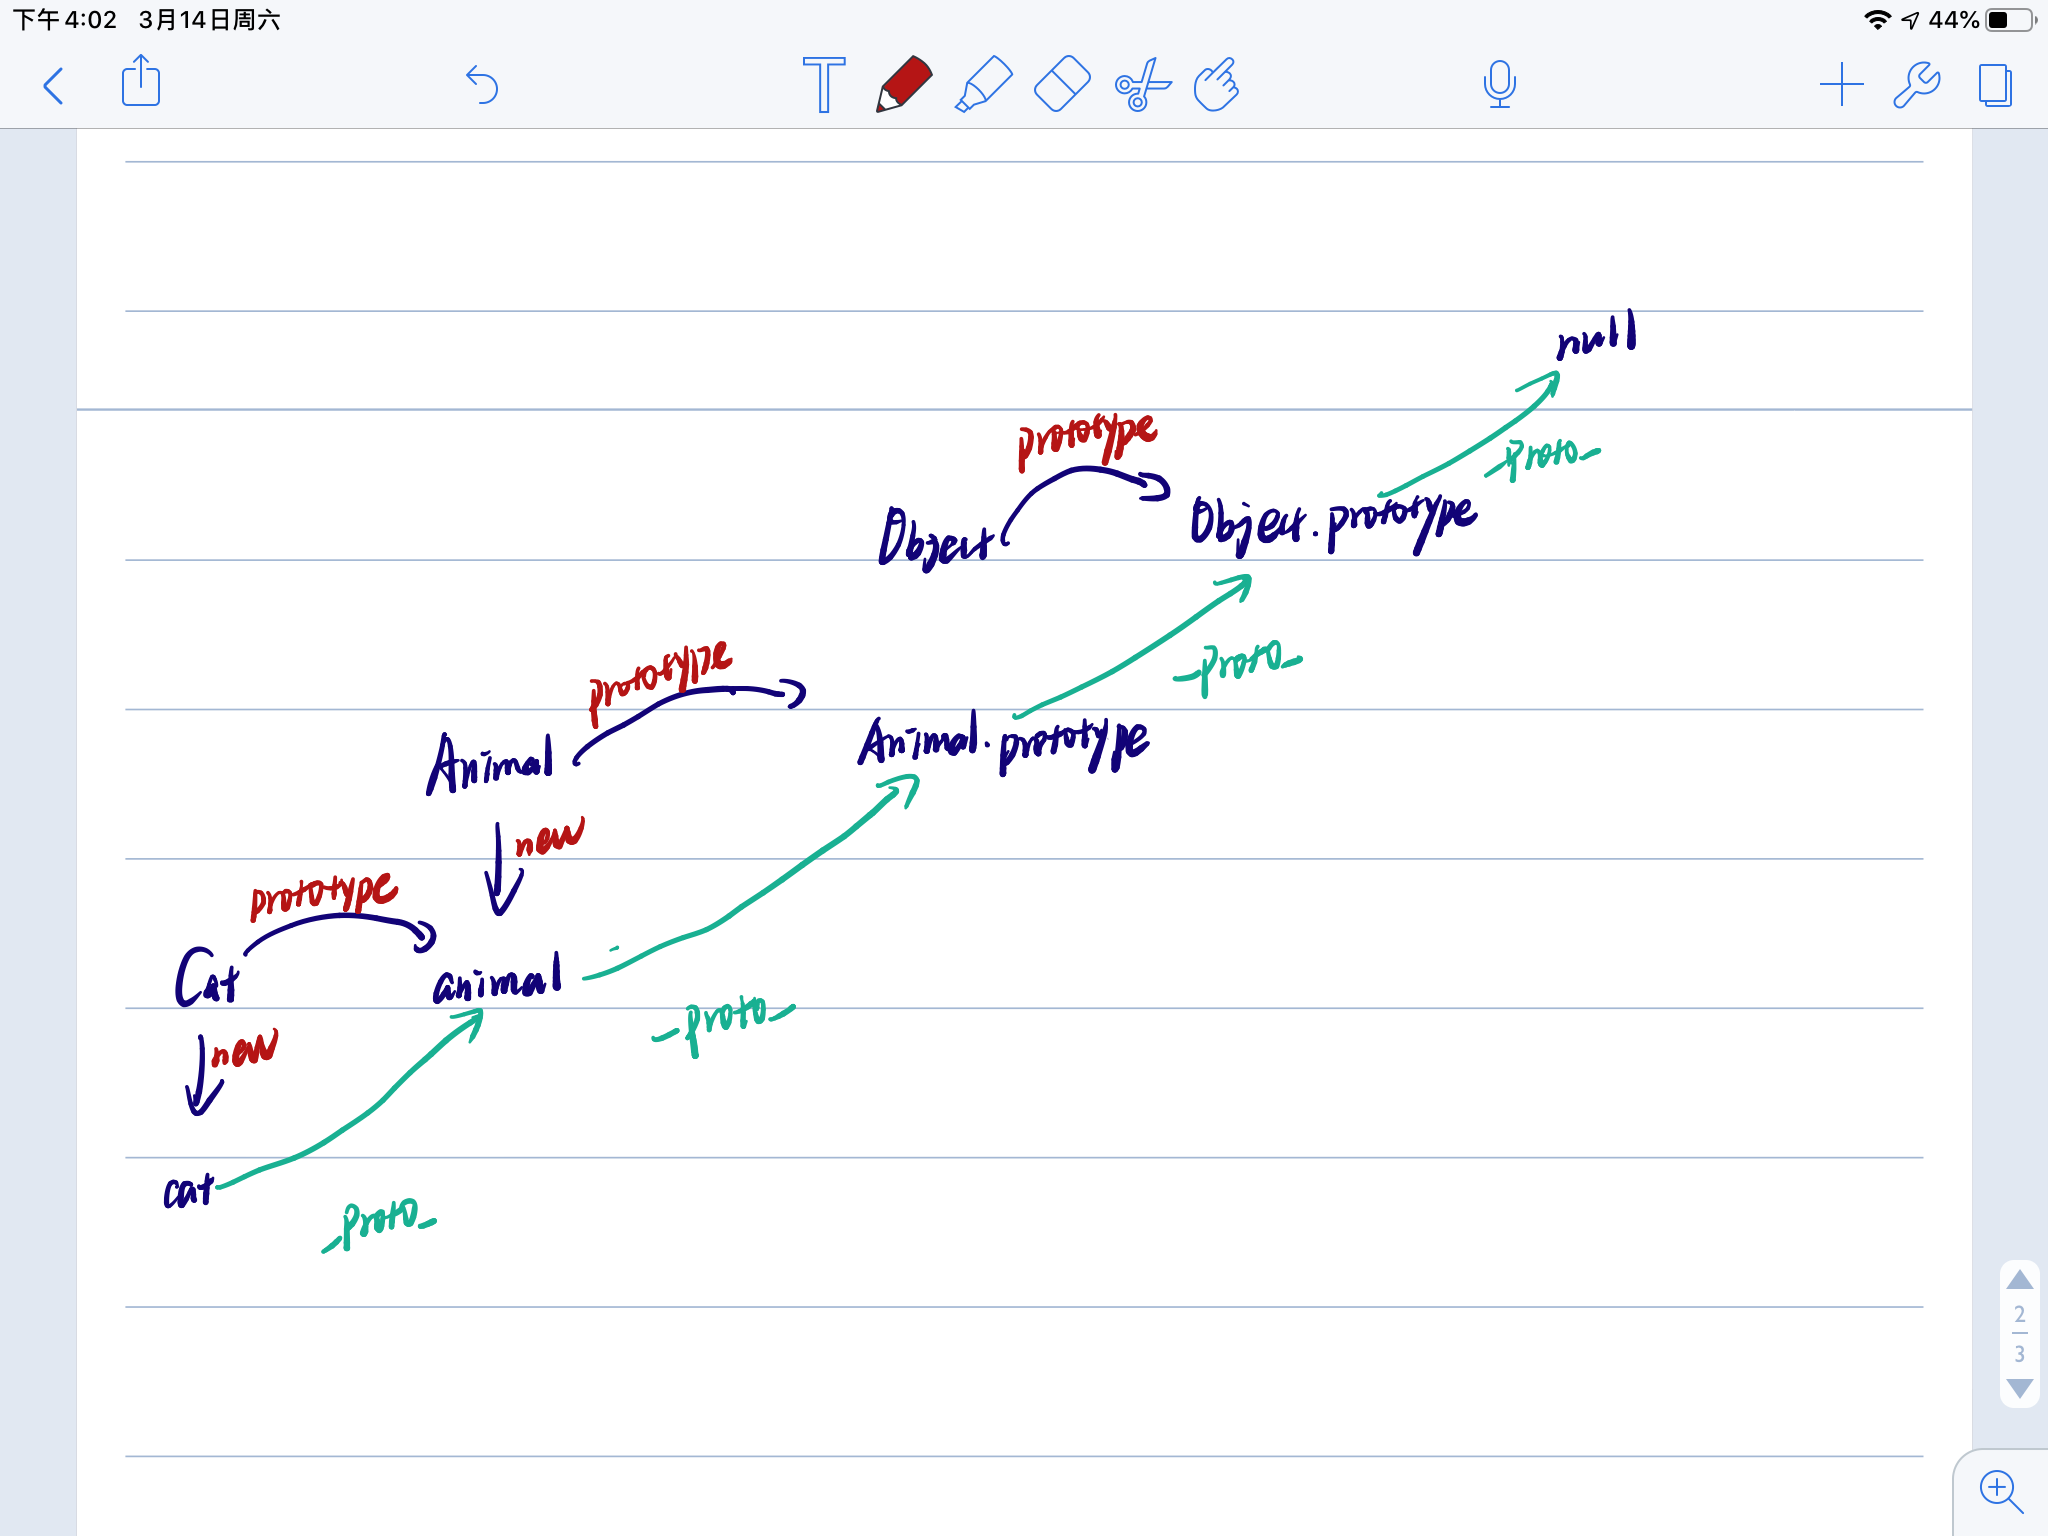 下午4:02 3月14日周六
44%
T
null
prototype
_proto_
Object
Object.prototype
prototype
_proto_
Animal
Animal.prototype
new
prototype
Cat
animal
_proto_
new
cat
_proto_
2
3